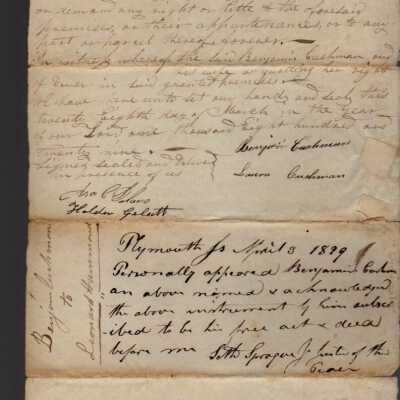 on demand any right or title to the foresaid
premises, or their appurtenances, or to any
part or parcel thereof forever.
In witness whereof the said Benjamin Cushman and
his wife as quitting her right
of Dower in said granted premises
have unto set our hands and seals this
twenty Eighth day of March in the year
of our Lord one thousand Eight hundred and
Twenty nine.
Signed sealed and Deliver
in presence of us
Benjamin Cushman
Laura Cushman
Holder
Benjamin Cushman
to
Leonard Hammond
Plymouth Ss April 3 1829
Personally appeared Benjamin Cushm
an above named & acknowledged
the above instrument by him subscr
ibed to be his free act & deed
before me Seth Sprague Jr Justice of the
Peace